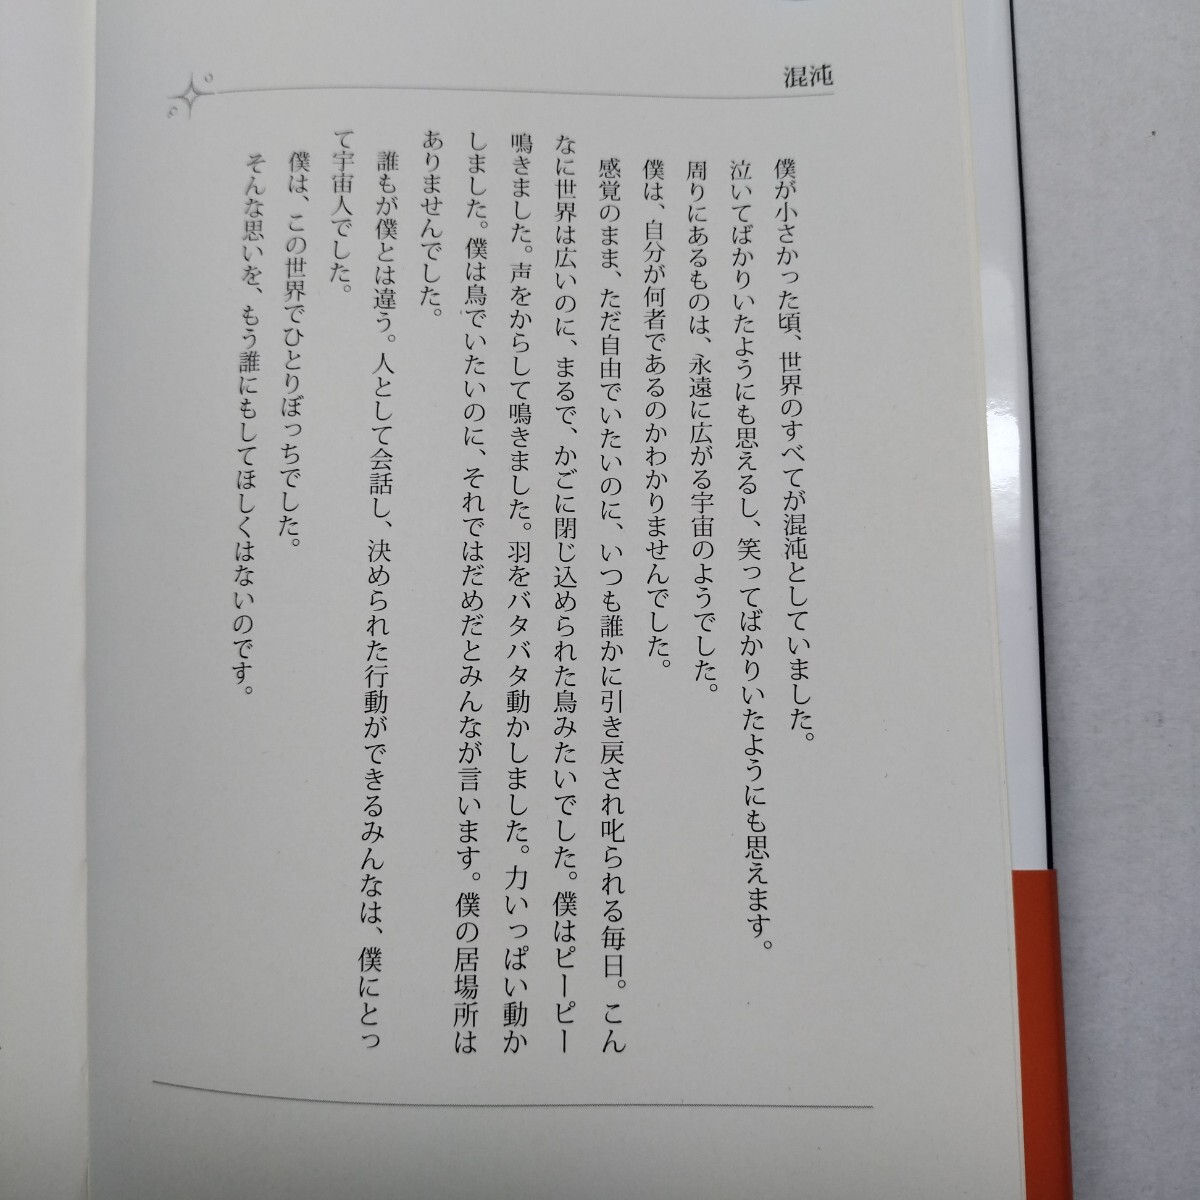 混沌
僕が小さかった頃、世界のすべてが混沌としていました。
泣いてばかりいたようにも思えるし、笑ってばかりいたようにも思えます。
周りにあるものは、永遠に広がる宇宙のようでした。
僕は、自分が何者であるのかわかりませんでした。
感覚のまま、ただ自由でいたいのに、いつも誰かに引き戻され叱られる毎日。こん
なに世界は広いのに、まるで、かごに閉じ込められた鳥みたいでした。僕はピーピー
鳴きました。声をからして鳴きました。羽をバタバタ動かしました。力いっぱい動か
しました。僕は鳥でいたいのに、それではだめだとみんなが言います。僕の居場所は
ありませんでした。
誰もが僕とは違う。人として会話し、決められた行動ができるみんなは、僕にとっ
て宇宙人でした。
僕は、この世界でひとりぼっちでした。
そんな思いを、もう誰にもしてほしくはないのです。